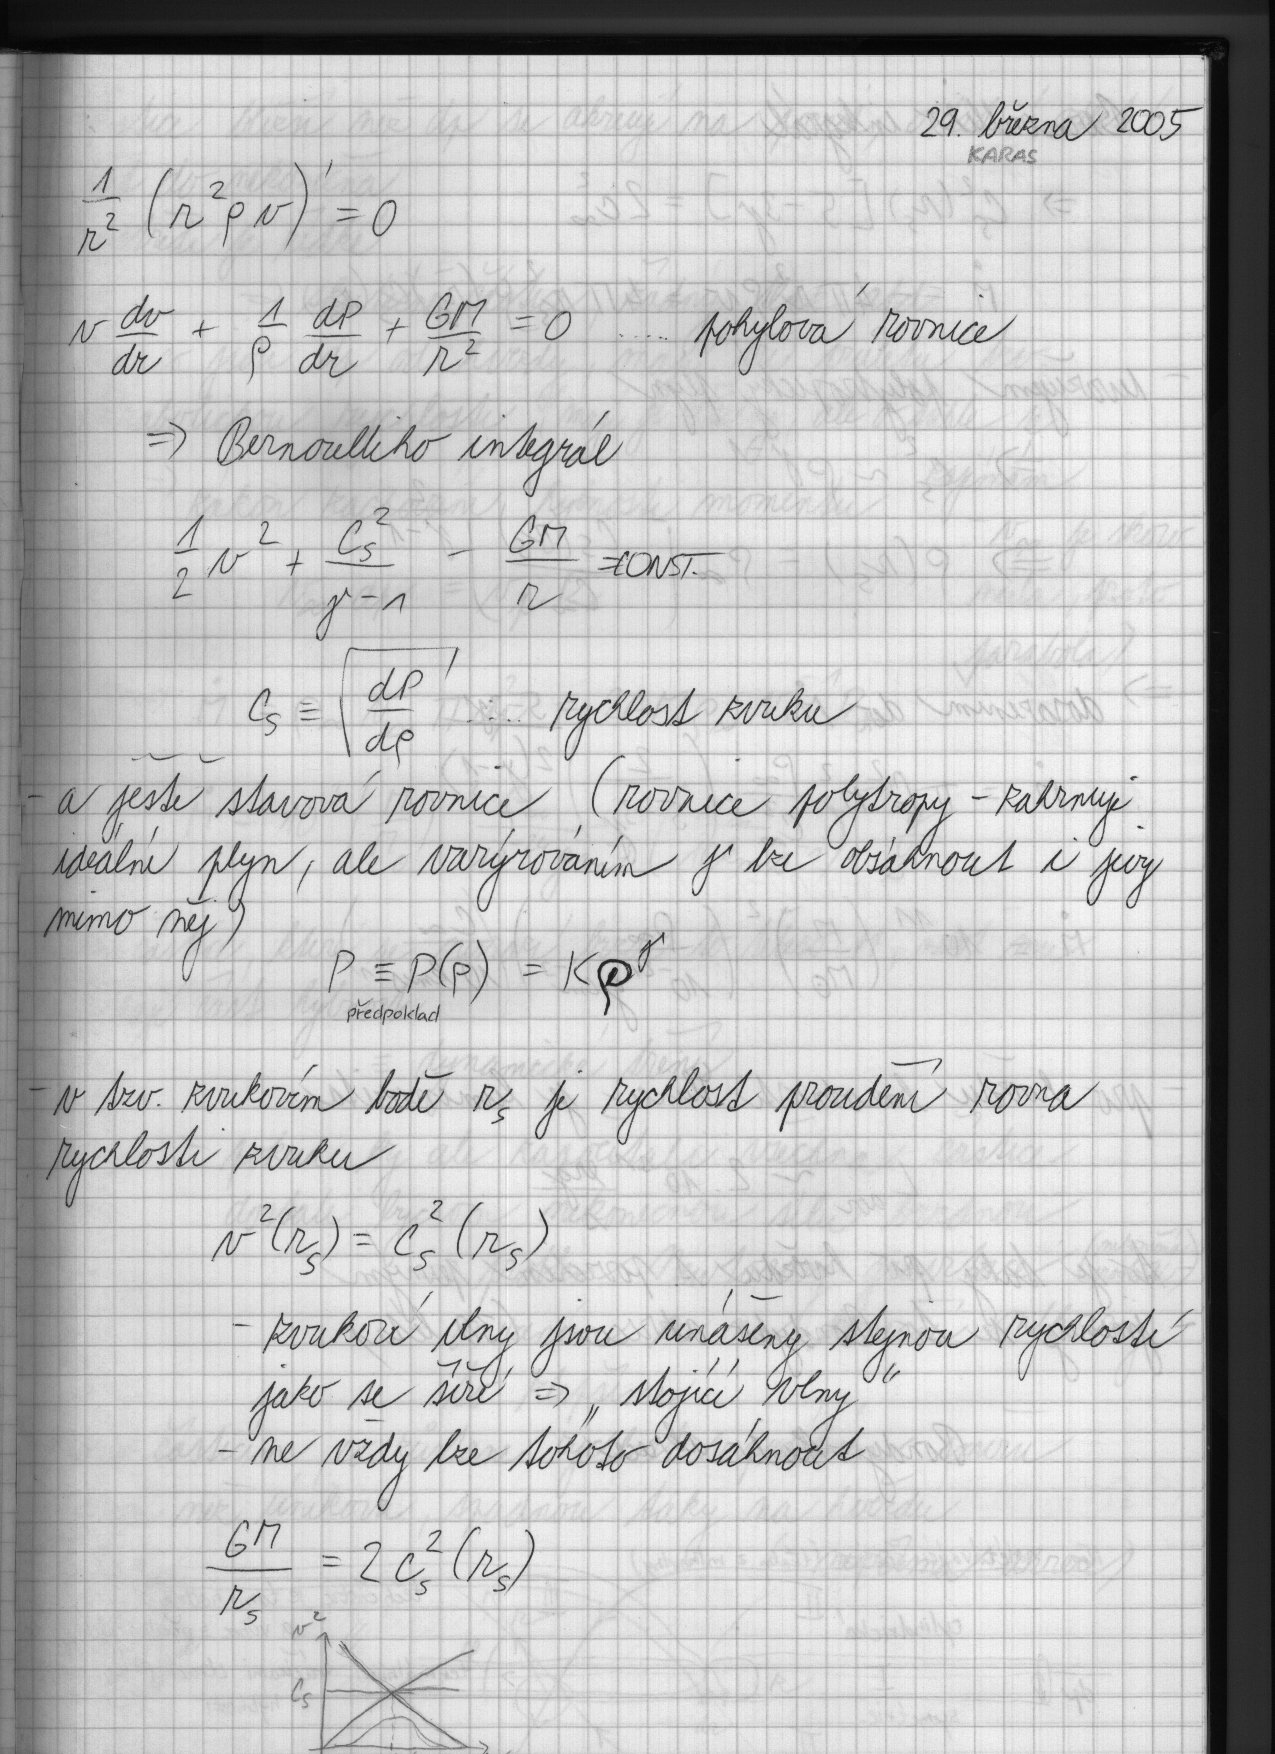 29. března 2005
KARAS
1/r² (r²ρv)' = 0
v dv/dr + 1/ρ dP/dr + GM/r² = 0 .... pohybová rovnice
⇒ Bernoulliho integrál
1/2 v² + c_s²/(γ-1) - GM/r = CONST.
c_s ≡ √(dP/dρ) .... rychlost zvuku
- a ještě stavová rovnice (rovnice polytropy - zahrnuje
ideální plyn, ale varýrováním γ lze obsáhnout i jevy
mimo něj)
P ≡ P(ρ) = Kρ^γ
předpoklad
- v tzv. zvukovém bodě r_s je rychlost proudění rovna
rychlosti zvuku
v²(r_s) = c_s²(r_s)
- zvukové vlny jsou unášeny stejnou rychlostí
jako se šíří ⇒ „stojící vlny“
- ne vždy lze tohoto dosáhnout
GM/r_s = 2c_s²(r_s)
v²
c_s